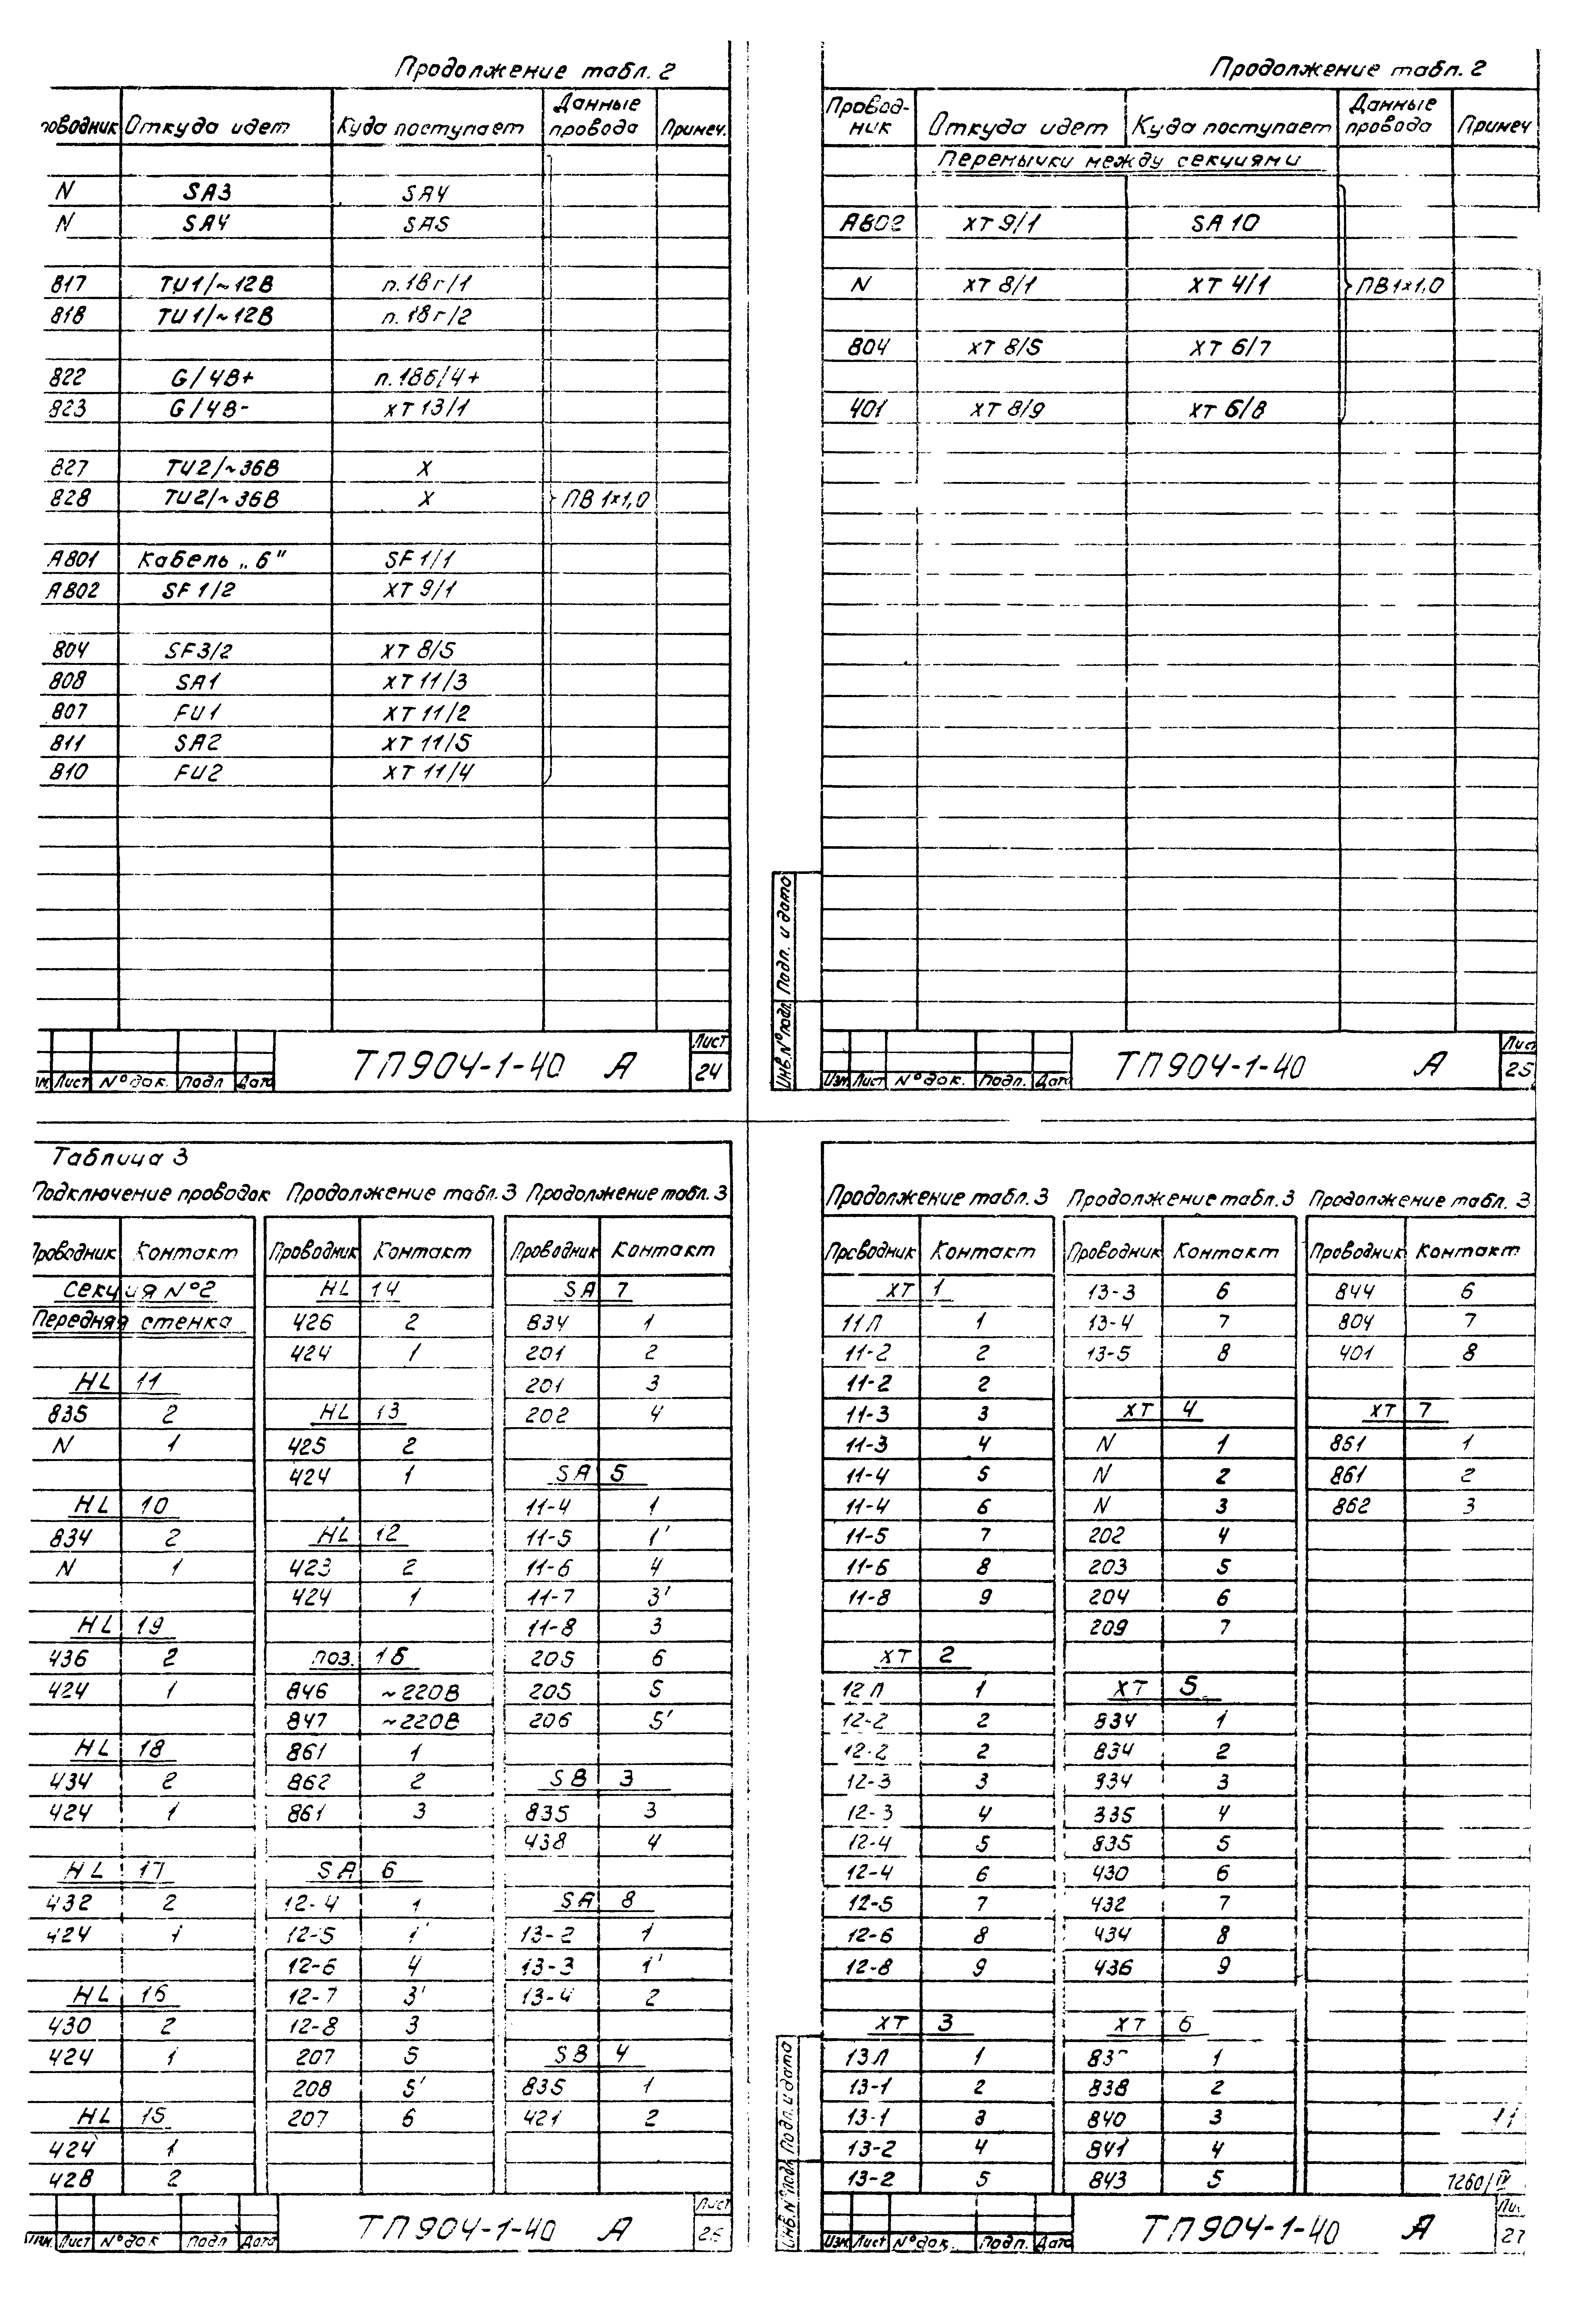 Продолжение табл. 2
Откуда идет Куда поступает Данные провода Примеч.
N SA3 SA4
N SA4 SA5
817 TU1/~12В п.18г/1
818 TU1/~12В п.18г/2
822 G/4В+ п.18б/4+
823 G/4В- XT 13/1
827 TU2/~36В X
828 TU2/~36В X ПВ 1×1,0
A801 Кабель „6" SF 1/1
A802 SF 1/2 XT 9/1
804 SF3/2 XT 8/5
808 SA1 XT 11/3
807 FU1 XT 11/2
811 SA2 XT 11/5
810 FU2 XT 11/4
Лист № док. Подп Дата ТП904-1-40 А Лист 24
Продолжение табл. 2
Провод-
ник Откуда идет Куда поступает Данные провода Примеч
Перемычки между секциями
A802 XT 9/1 SA 10
N XT 8/1 XT 4/1 ПВ1×1,0
804 XT 8/5 XT 6/7
401 XT 8/9 XT 6/8
Инв.№ подл. Подп. и дата
Изм Лист № док. Подп. Дата ТП904-1-40 А 25
Таблица 3
Подключение проводок
Проводник Контакт
Секция №2
Передняя стенка
HL 11
835 2
N 1
HL 10
834 2
N 1
HL 19
436 2
424 1
HL 18
434 2
424 1
HL 17
432 2
424 1
HL 16
430 2
424 1
HL 15
424 1
428 2
Продолжение табл. 3
Проводник Контакт
HL 14
426 2
424 1
HL 13
425 2
424 1
HL 12
423 2
424 1
поз. 18
846 ~220В
847 ~220В
861 1
862 2
861 3
SA 6
12-4 1
12-5 1'
12-6 4
12-7 3'
12-8 3
207 5
208 5'
207 6
Продолжение табл. 3
Проводник Контакт
SA 7
834 1
201 2
201 3
202 4
SA 5
11-4 1
11-5 1'
11-6 4
11-7 3'
11-8 3
205 6
205 5
206 5'
SB 3
835 3
438 4
SA 8
13-2 1
13-3 1'
13-4 2
SB 4
835 1
421 2
Изм. Лист № док Подп Дата ТП904-1-40 А Лист 26
Продолжение табл. 3
Проводник Контакт
XT 1
11Л 1
11-2 2
11-2 2
11-3 3
11-3 4
11-4 5
11-4 6
11-5 7
11-6 8
11-8 9
XT 2
12Л 1
12-2 2
12-2 2
12-3 3
12-3 4
12-4 5
12-4 6
12-5 7
12-6 8
12-8 9
XT 3
13Л 1
13-1 2
13-1 3
13-2 4
13-2 5
Продолжение табл. 3
Проводник Контакт
13-3 6
13-4 7
13-5 8
XT 4
N 1
N 2
N 3
202 4
203 5
204 6
209 7
XT 5
834 1
834 2
834 3
835 4
835 5
430 6
432 7
434 8
436 9
XT 6
1
838 2
840 3
841 4
843 5
Продолжение табл. 3
Проводник Контакт
844 6
804 7
401 8
XT 7
861 1
861 2
862 3
1260/IV
Инв.№ подл Подп. и дата
Изм Лист № док. Подп. Дата ТП904-1-40 А 27